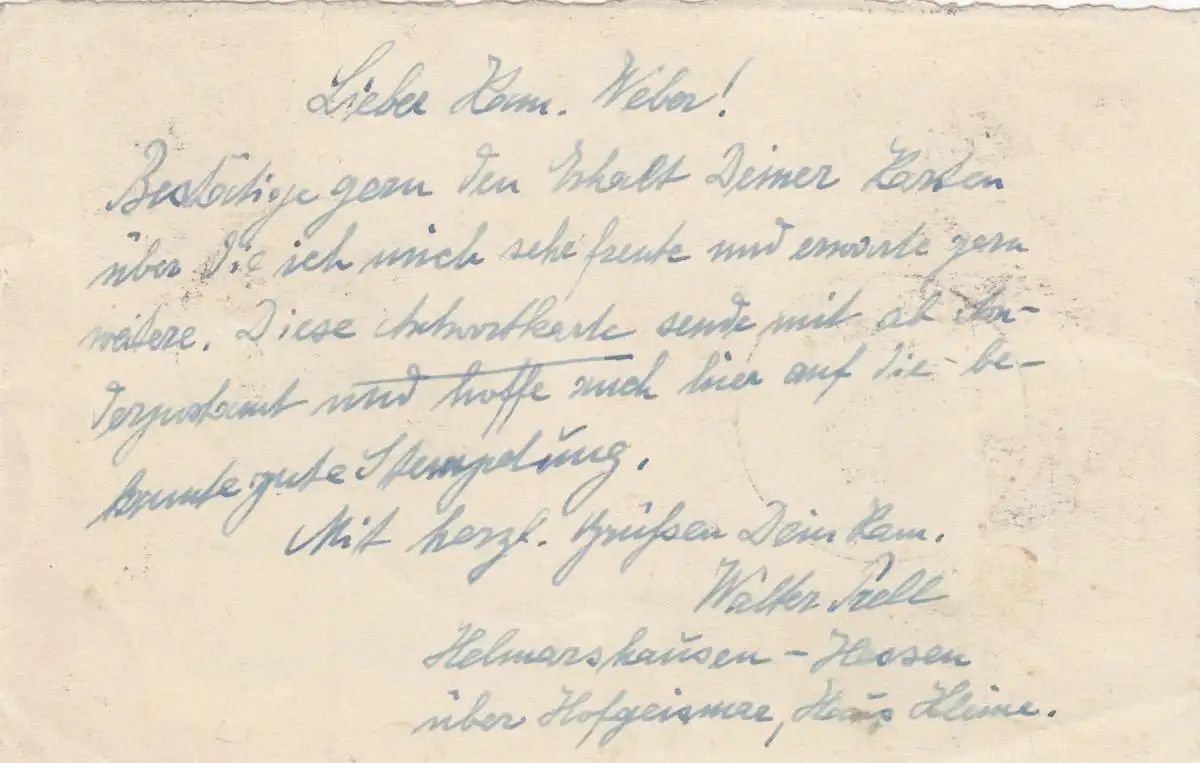 Lieber Kam. Weber!
Bestätige gern den Erhalt Deiner Karten
über die ich mich sehr freute und erwarte gern
weitere. Diese Antwortkarte sende mit ab Son-
derpostamt und hoffe auch hier auf die be-
kannte gute Stempelung.
Mit herzl. Grüßen Dein Kam.
Walter
Helmarshausen - Hessen
über Hofgeismar, Haus Kleine.